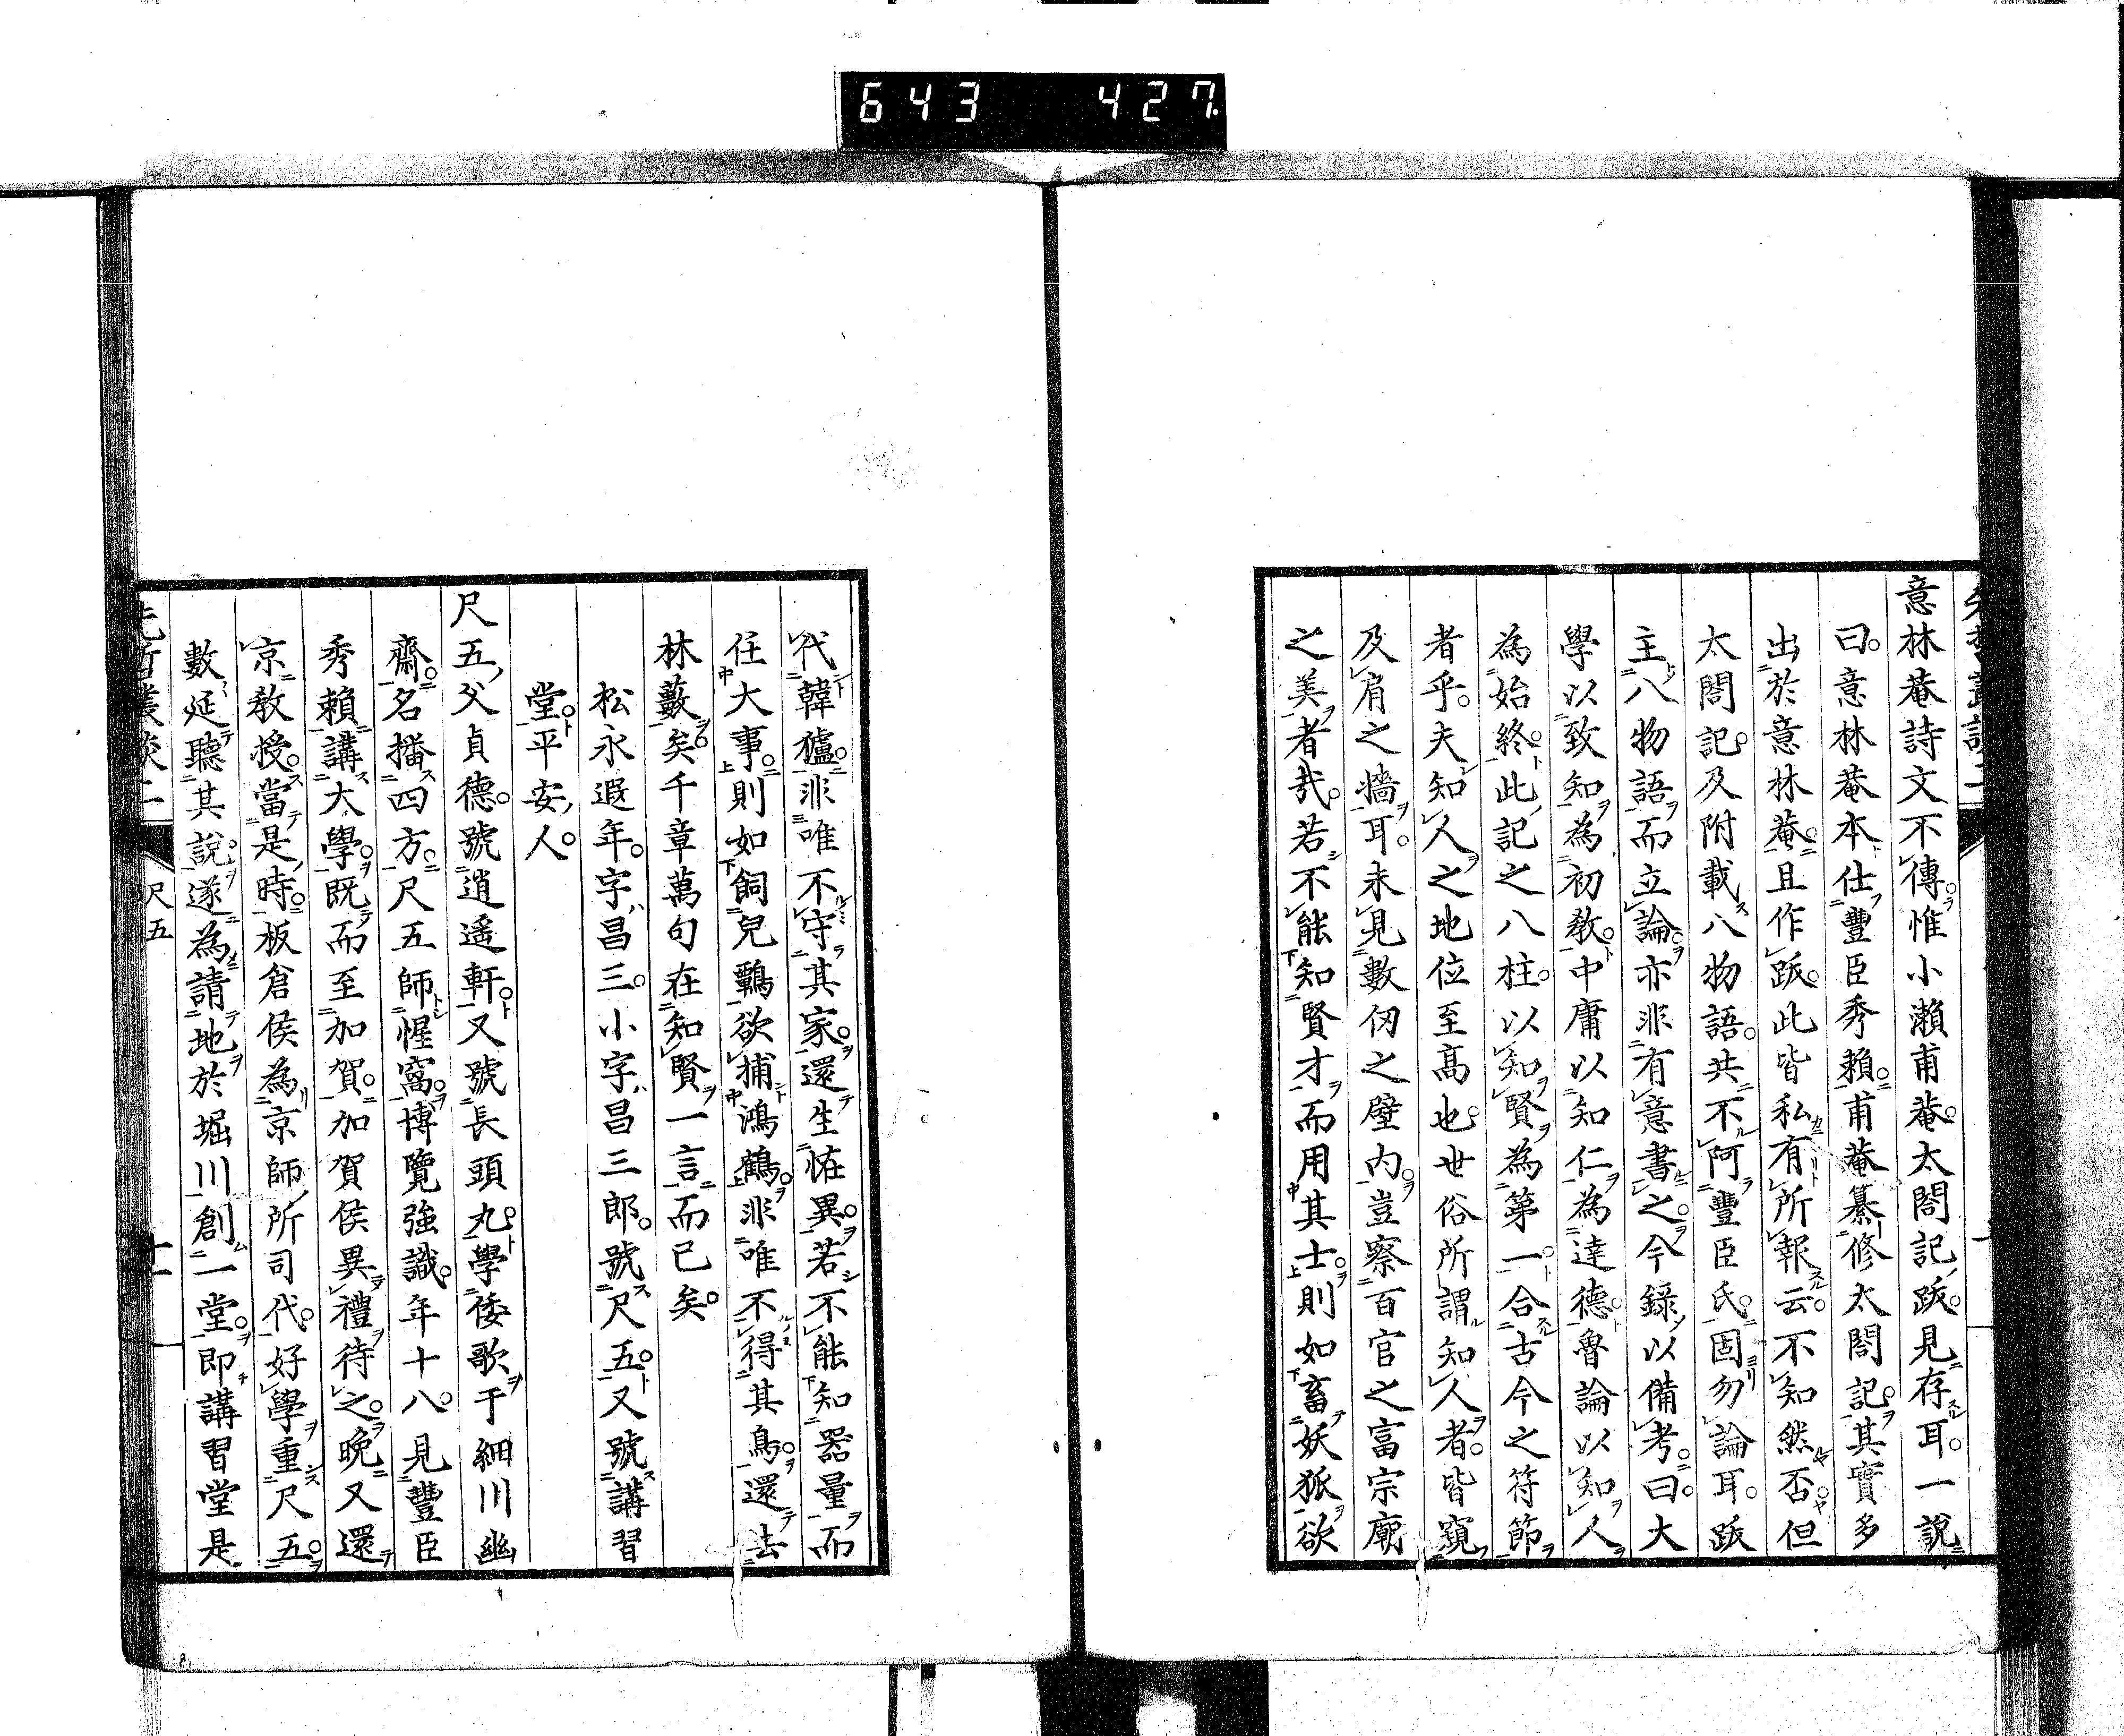 643 427
意林菴詩文不傳惟小瀨甫菴太閤記跋見存耳一說
曰意林菴本仕豐臣秀賴甫菴纂修太閤記其實多
出於意林菴且作跋此皆私有所報云不知然否但
太閤記及附載八物語共不阿豐臣氏固勿論耳跋
主八物語而立論亦非有意書之今錄以備考曰大
學以致知為初教中庸以知仁為達德魯論以知人
為始終此記之八柱以知賢為第一合古今之符節
者乎夫知人之地位至高也世俗所謂知人者皆窺
及肩之墻耳未見數仞之壁內豈察百官之富宗廟
之美者哉若不能知賢才而用其士則如畜妖狐欲
代韓獹非唯不守其家還生恠異若不能知器量而
任大事則如飼兒鸅欲捕鴻鶴非唯不得其鳥還去
林藪矣千章萬句在知賢一言而已矣
松永遐年字昌三小字昌三郎號尺五又號講習
堂平安人
尺五父貞德號逍遙軒又號長頭丸學倭歌于細川幽
齋名播四方尺五師惺窩博覽強識年十八見豐臣
秀賴講大學既而至加賀加賀侯異禮待之晚又還
京教授當是時板倉侯為京師所司代好學重尺五
數延聽其說遂為請地於堀川創一堂即講習堂是
先哲叢談二
尺五
十一